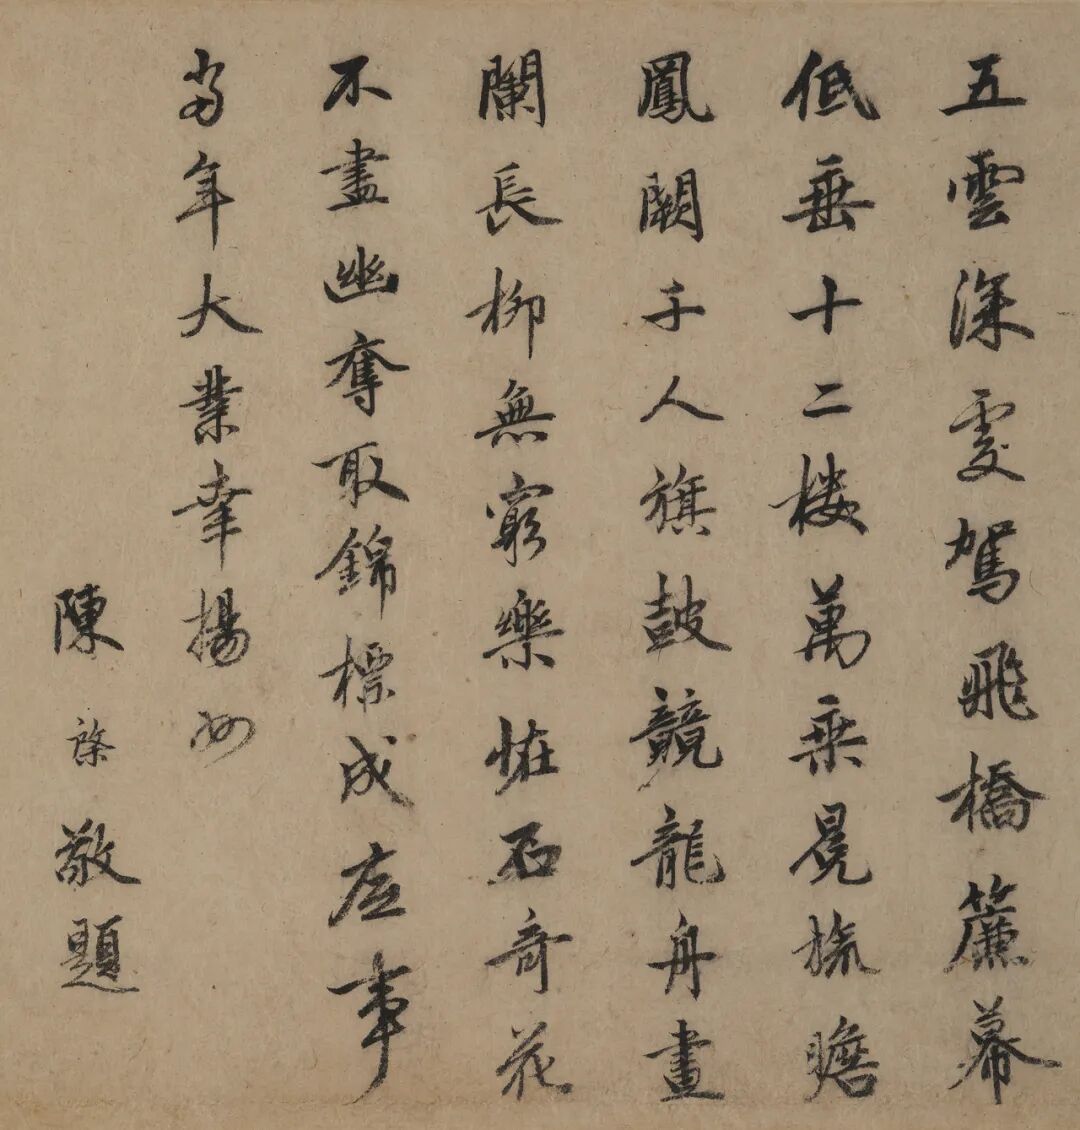 五雲深處駕飛橋簾幕
低垂十二樓萬乘冕旒瞻
鳳闕千人旗鼓競龍舟畫
闌長柳無窮樂恠石奇花
不盡幽奪取錦標成底事
當年大業幸揚州
陳敬題